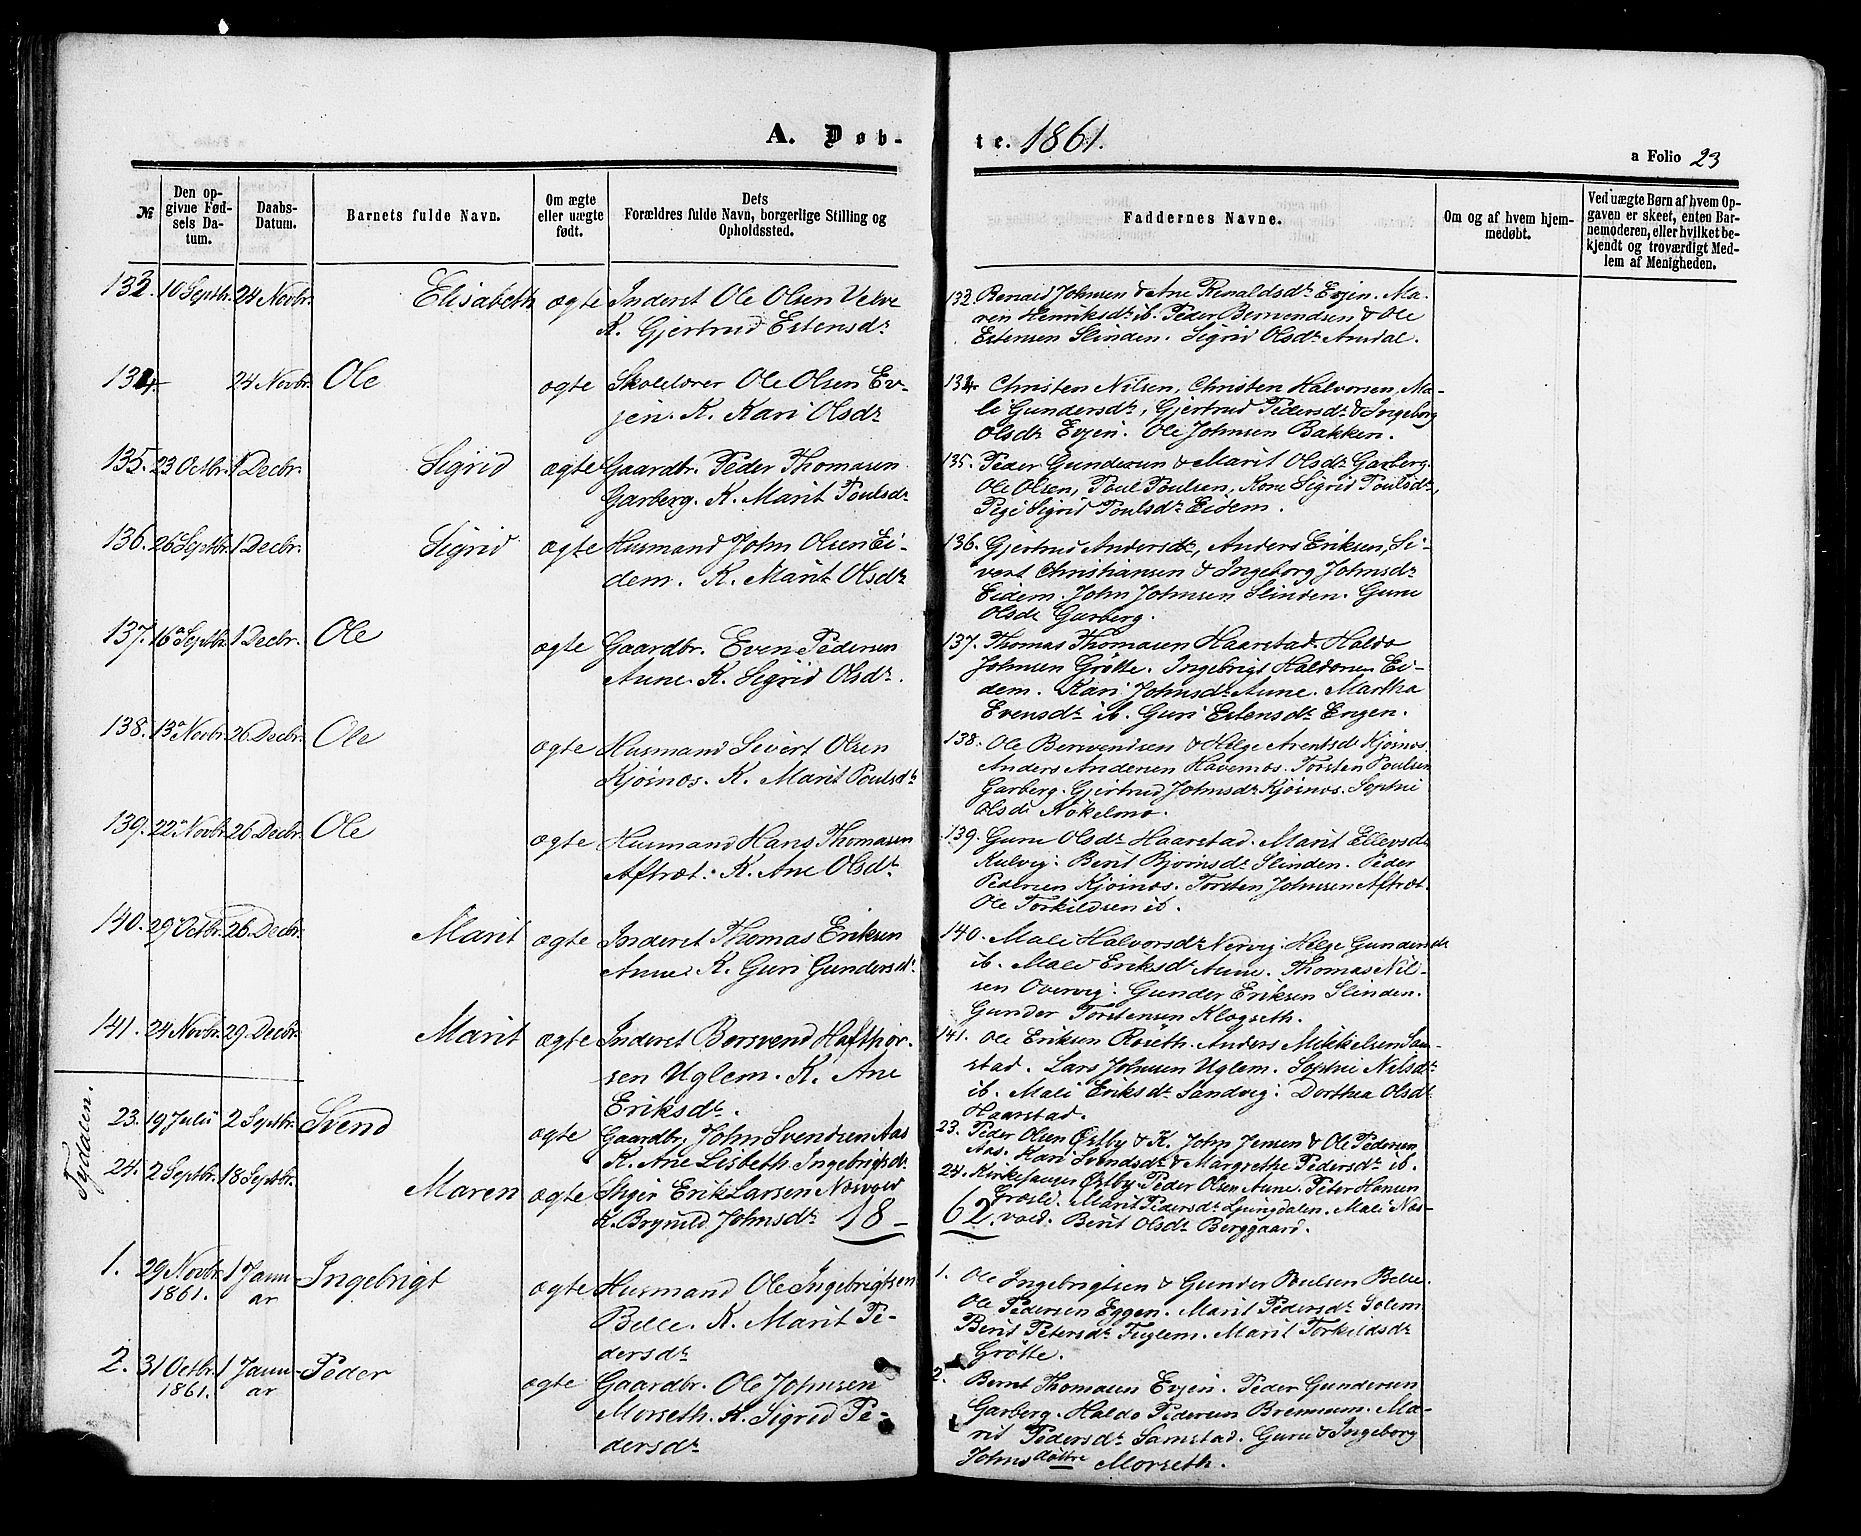 A. Døb-
te. 1861.
a Folio 23
№
Den op-
givne Fød-
sels Da-
tum.
Daabs-
Datum.
Barnets fulde Navn.
Om ægte
eller uægte
født.
Dets
Forældres fulde Navn, borgerlige Stilling og
Opholdssted.
Faddernes Navne.
Om og af hvem hjem-
medøbt.
Ved uægte Børn af hvem Op-
gaven er skeet, enten Bar-
nemoderen, eller hvilket be-
kjendt og troværdigt Med-
lem af Menigheden.
133. 10 Septbr. 24 Novbr. Elisabeth ægte Inderst Ole Olsen Velve
K. Gjertrud Estensdr
133. Renald Johnsen & Ane Renaldsdr Evjen. Ma-
ren Henriksdr ib. Peder Bersvendsen & Ole
Estensen Slinden. Sigrid Olsdr Amdal.
134. 24 Novbr. Ole ægte Skolelærer Ole Olsen Ev-
jen. K. Kari Olsdr
134. Christen Nilsen, Christen Halvorsen, Ma-
li Gundersdr, Gjertrud Pedersdr & Ingeborg
Olsdr Evjen. Ole Johnsen Bakken.
135. 23 Octbr. 1 Decbr. Sigrid ægte Gaardbr. Peder Thomasen
Garberg. K. Marit Poulsdr
135. Peder Gundersen & Marit Olsdr Garberg.
Ole Olsen, Poul Poulsen, Kone Sigrid Poulsdr,
Pige Sigrid Poulsdr Eidem.
136. 26 Septbr. 1 Decbr. Sigrid ægte Husmand John Olsen Ei-
dem. K. Marit Olsdr
136. Gjertrud Andersdr, Anders Eriksen, Si-
vert Christiansen & Ingeborg Johnsdr
Eidem. John Johnsen Slinden. Guru
Olsdr Garberg.
137. 16 Septbr. 1 Decbr. Ole ægte Gaardbr. Even Pedersen
Aune. K. Sigrid Olsdr.
137. Thomas Thomasen Haarstad. Haldo
Johnsen Grøtte. Ingebrigt Haldorsen Ei-
dem. Kari Johnsdr Aune. Martha
Evensdr ib. Guri Estensdr Engen.
138. 13 Novbr. 26 Decbr. Ole ægte Husmand Sivert Olsen
Kjøsnæs. K. Marit Poulsdr
138. Ole Bersvendsen & Helge Arentsdr Kjøsnæs.
Anders Andersen Havernæs. Torsten Poulsen
Garberg. Gjertrud Johnsdr Kjøsnæs. Sophie
Olsdr Nøkelmo.
139. 22 Novbr. 26 Decbr. Ole ægte Husmand Hans Thomasen
Aftræt. K. Ane Olsdr
139. Guru Olsdr Haarstad. Marit Ellevsdr
Kulvig. Berit Bjørnsdr Slinden. Peder
Pedersen Kjøsnæs. Torsten Johnsen Aftræt.
Ole Torkildsen ib.
140. 29 Octbr. 26 Decbr. Marit ægte Inderst Thomas Eriksen
Aune. K. Guri Gundersdr
140. Mali Halvorsdr Nervig. Helge Gundersdr
ib. Mali Eriksdr Aune. Thomas Nil-
sen Overvig. Gunder Eriksen Slinden.
Gunder Torstensen Klegseth.
141. 24 Novbr. 29 Decbr. Marit ægte Inderst Borsvend Hafthor-
sen Uglem. K. Ane
Eriksdr.
141. Ole Eriksen Røseth. Anders Mikkelsen Sam-
stad. Lars Johnsen Uglem. Sophie Nilsdr
ib. Mali Eriksdr Sandvig. Dorthea Olsdr
Haarstad.
Tydalen.
23. 19 Julii 2 Septbr. Svend ægte Gaardbr. John Svendsen Aas
K. Ane Lisbeth Ingebrigtsdr
23. Peder Olsen Østby & K. John Jensen & Ole Pedersen
Aas. Kari Svendsdr & Margrethe Pedersdr ib.
24. 2 Septbr. 18 Septbr. Maren ægte Erik Larsen Næsvold
K. Bryndld Johnsdr 18 -
24. Kirkesanger Østby. Peder Olsen Aune. Peter Hansen
Græsli. Marit Pedersdr Ljungdalen. Mali Næs-
62. vold. Berit Olsdr Berggaard.
1. 29 Novbr. 1861. 1 Janu-
ar Ingebrigt ægte Husmand Ole Ingebrigtsen
Belle. K. Marit Pe-
dersdr
1. Ole Ingebrigtsen & Gunder Poulsen Belle.
Ole Pedersen Eggen. Marit Pedersdr Solem.
Berit Petersdr Fuglem. Marit Torkildsdr
Grøtte.
2. 31 Octbr. 1861. 1 Janu-
ar Peder ægte Gaardbr. Ole Johnsen
Morseth. K. Sigrid Pe-
dersdr
2. Bernt Thomasen Evjen. Peder Gundersen
Garberg. Haldo Pedersen Bremnum. Ma-
rit Pedersdr Samstad. Guru & Ingeborg
Johnsdøttre Morseth.